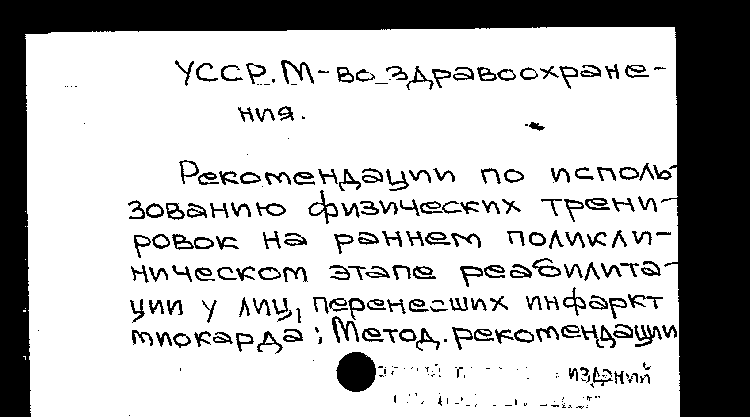 УССР. М-во здравоохране-
ния.
Рекомендации по исполь-
зованию физических трени-
ровок на раннем поликли-
ническом этапе реабилита-
ции у лиц, перенесших инфаркт
миокарда : Метод. рекомендации
изданий